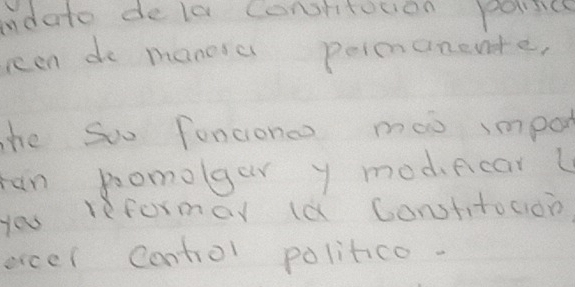 ndato de la Constitución politica
reen de manera permanente,
tre sus funciones mas impot
ran promolgar y modificar l
yes reformar la Constitoción
ercer Control politico.